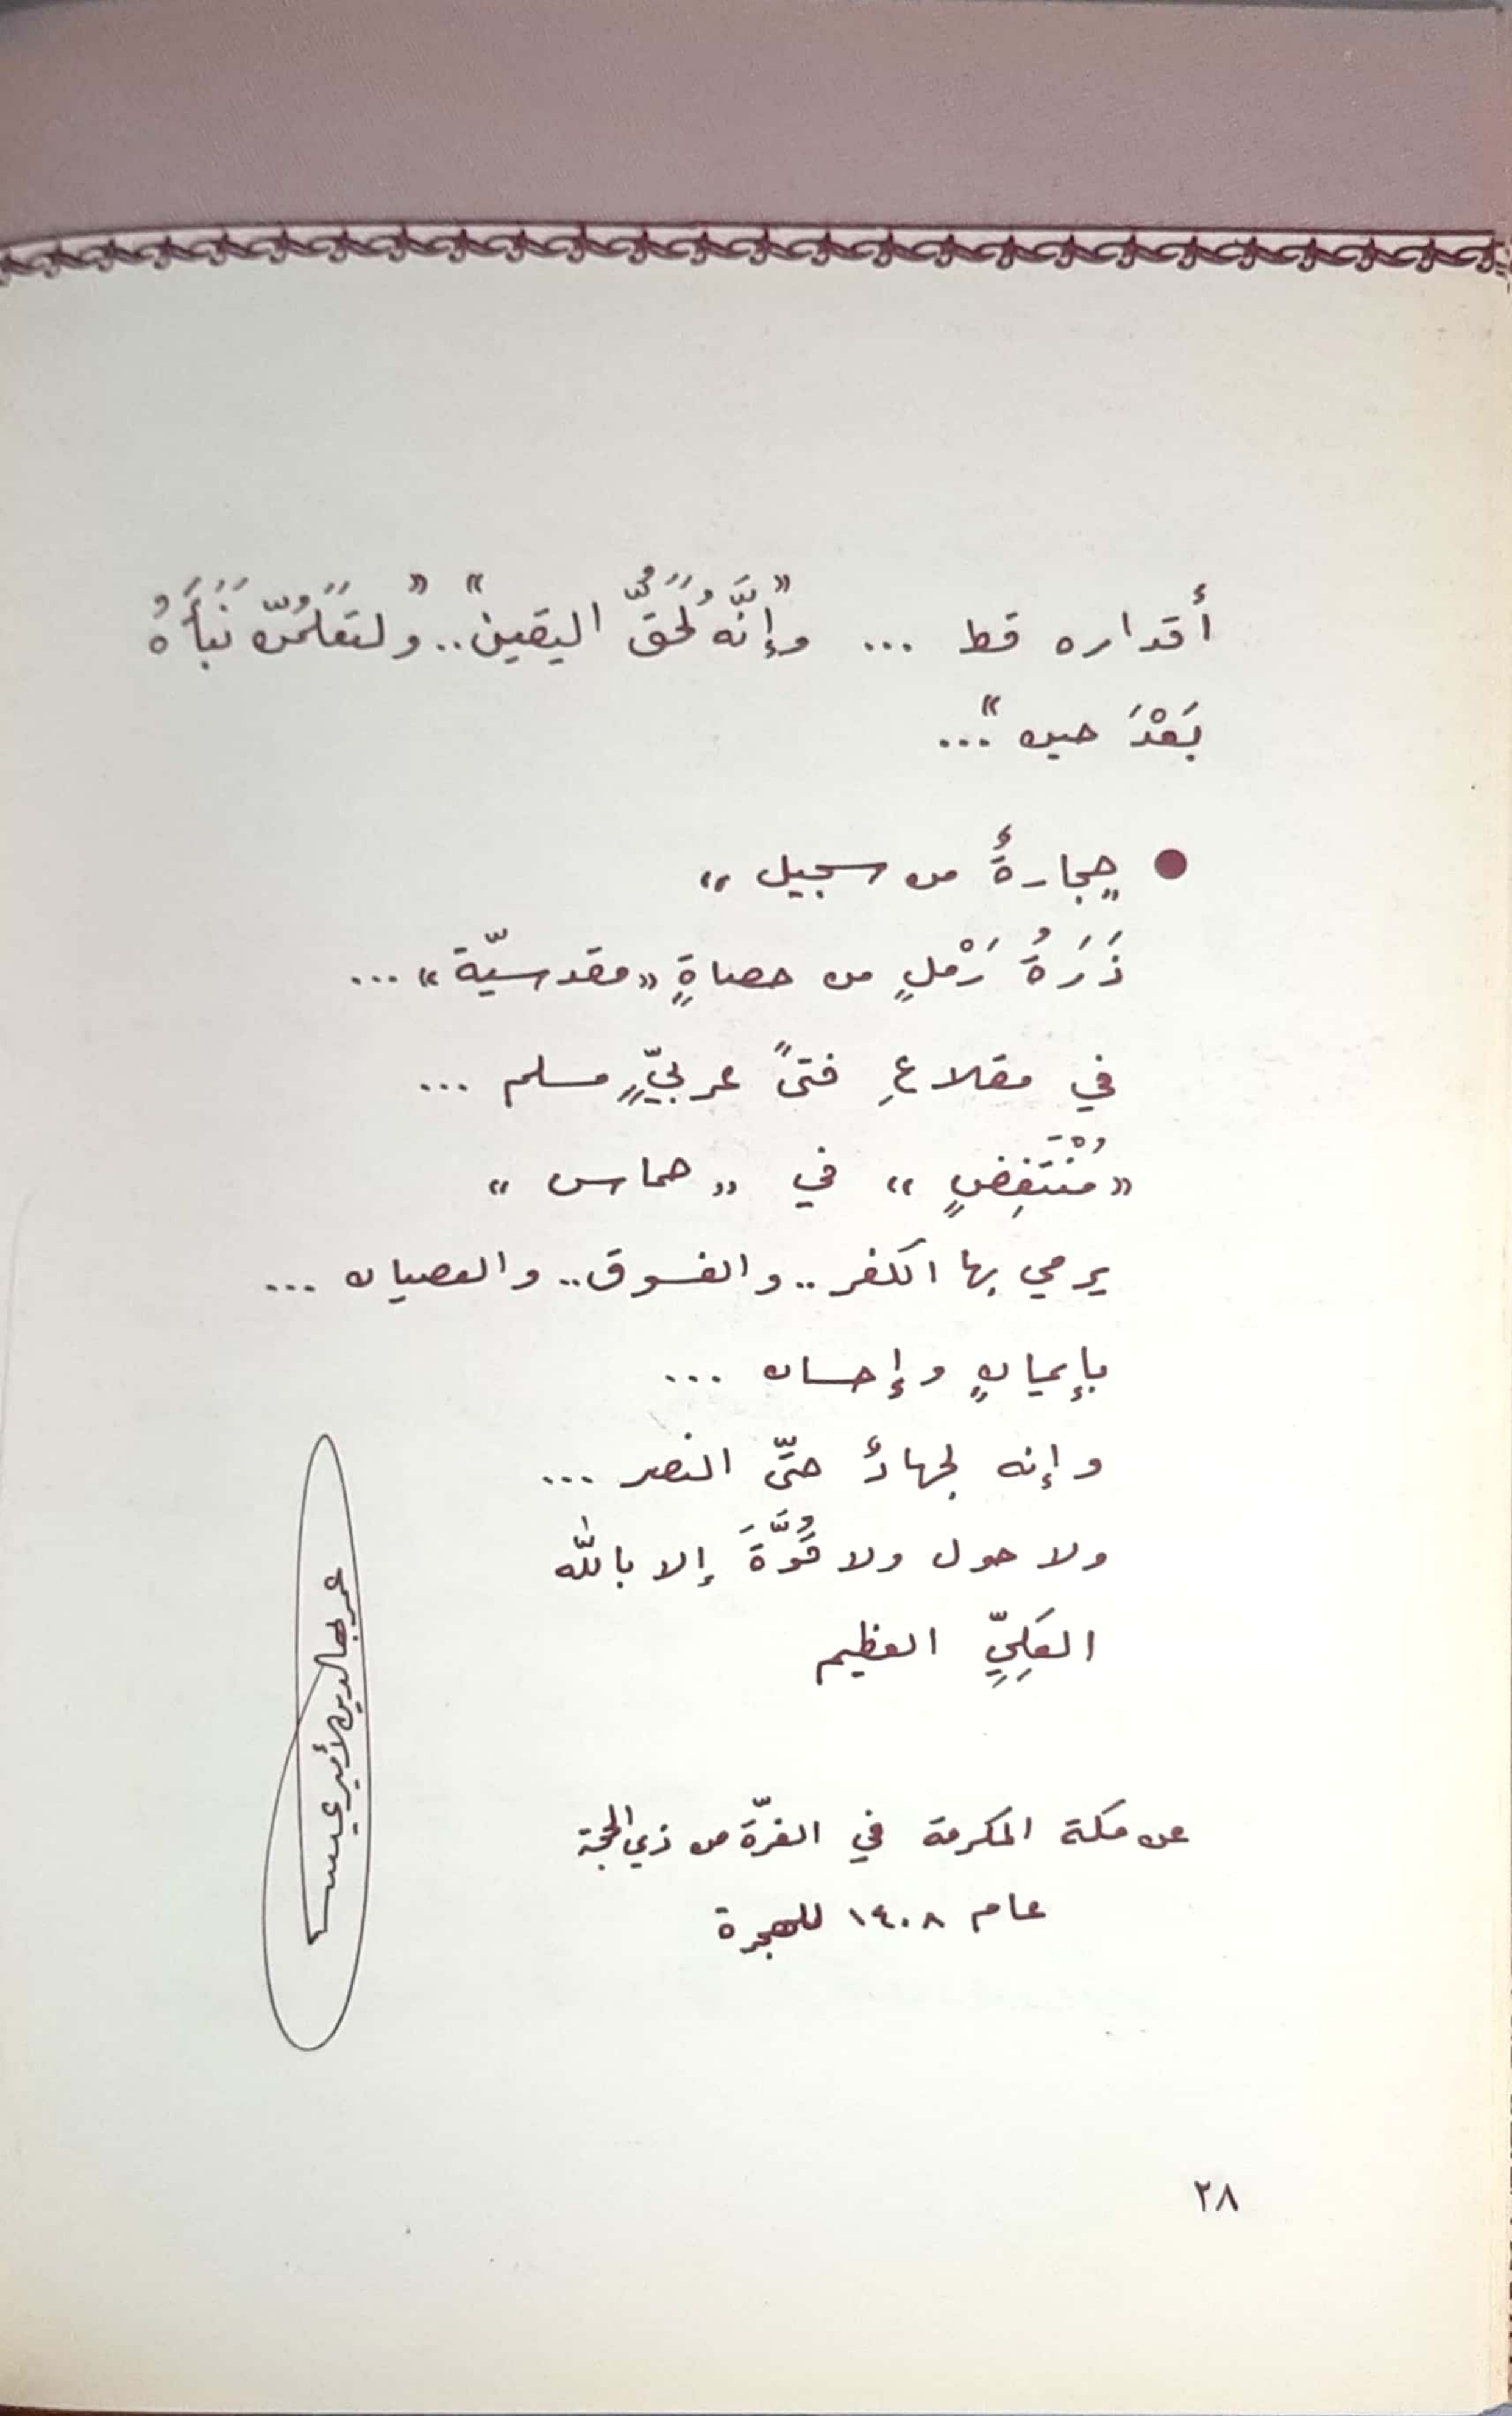 أقداره قط ... «وإنَّه لَحَقُّ اليقين».. «ولتَعلَمُنّ نَبَأَهُ
بَعْدَ حين»...
● حِجارةٌ من سجيل »
ذَرَةُ رَمْلٍ من حصاةٍ «مقدسيّة» ...
في مقلاعِ فتىً عربيٍّ مسلم ...
«مُنْتَفِضٍ» في «حماس»
يرمي بها الكفر .. والفسوق .. والعصيان ...
بإيمانٍ وإحسان ...
وإنه لجهادٌ حتَّى النصر ...
ولا حول ولا قُوَّةَ إلا باللّه
العَلِيِّ العظيم
عمر بهاء الدين الأميري
عن مكة المكرمة في الغرّة من ذي الحجة
عام ١٤٠٨ للهجرة
٢٨